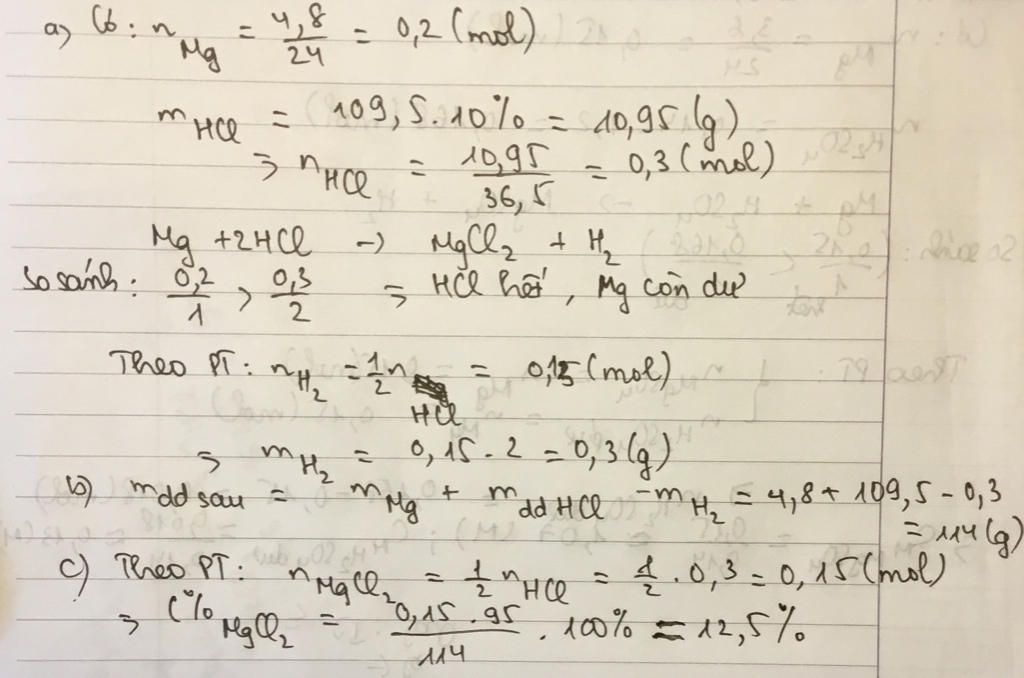 a) Có: n_Mg = 4,8/24 = 0,2 (mol)
m_HCl = 109,5.10% = 10,95 (g)
⇒ n_HCl = 10,95/36,5 = 0,3 (mol)
Mg + 2HCl → MgCl₂ + H₂
So sánh: 0,2/1 > 0,3/2 ⇒ HCl hết, Mg còn dư
Theo PT: n_H₂ = 1/2 n_HCl = 0,15 (mol)
⇒ m_H₂ = 0,15 . 2 = 0,3 (g)
b) m_dd sau = m_Mg + m_dd HCl - m_H₂ = 4,8 + 109,5 - 0,3
= 114 (g)
c) Theo PT: n_MgCl₂ = 1/2 n_HCl = 1/2 . 0,3 = 0,15 (mol)
⇒ C%_MgCl₂ = 0,15 . 95/114 . 100% = 12,5%